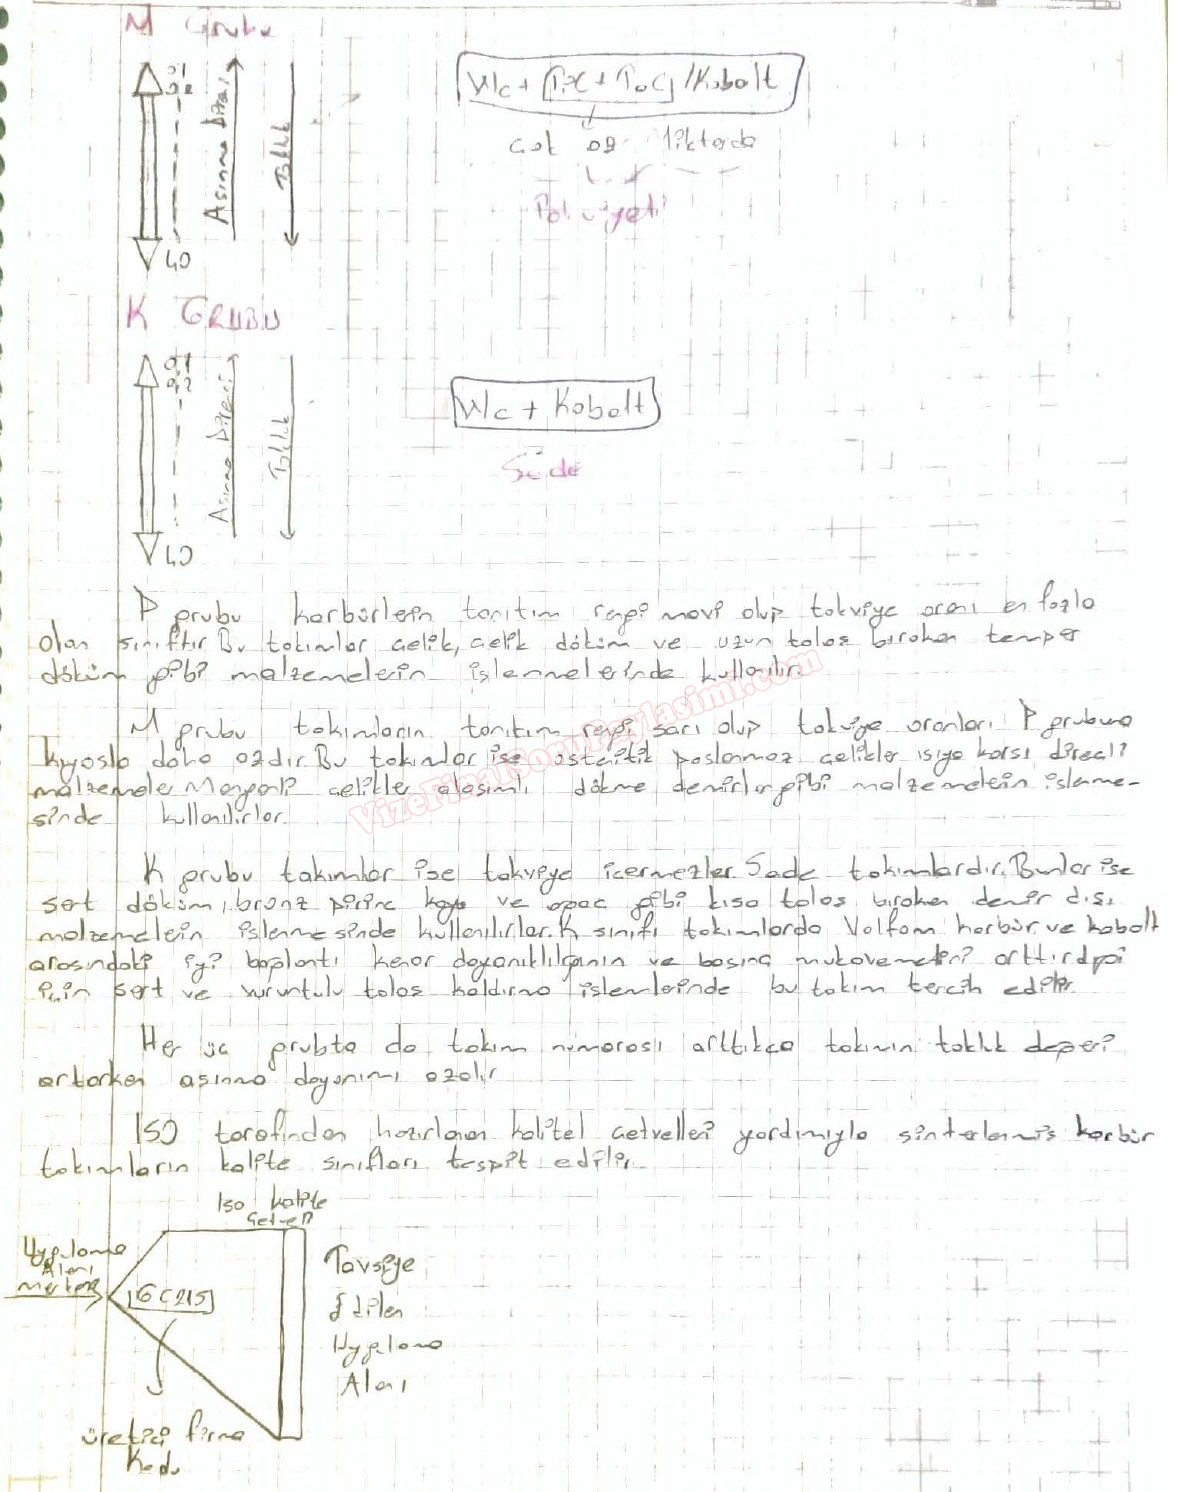 M Grubu
01
02
Aşınma Direci
Tokluk
40
Wc + TiC + TaC / Kobalt
Çok az miktarda
K GRUBU
01
02
Aşınma Direci
Tokluk
40
Wc + Kobalt
Sade
P grubu karbürlerin tanıtım rengi mavi olup takviye oranı en fazla
olan sınıftır. Bu takımlar çelik, çelik döküm ve uzun talaş bırakan temper
döküm gibi malzemelerin işlenmelerinde kullanılır.
M grubu takımların tanıtım rengi sarı olup takviye oranları P grubuna
kıyasla daha azdır. Bu takımlar ise östenitik paslanmaz çelikler ısıya karşı dirençli
malzemeler Manganlı çelikler alaşımlı dökme demirler gibi malzemelerin işlenme-
sinde kullanılırlar.
K grubu takımlar ise takviye içermezler. Sade takımlardır. Bunlar ise
sert döküm, bronz pirinç ve ağaç gibi kısa talaş bırakan demir dışı
malzemelerin işlenmesinde kullanılırlar. K sınıfı takımlarda Volfram karbür ve kobalt
arasındaki iyi bağlantı kenar dayanıklılığının ve basınç mukavemetini arttırdığı
için sert ve vuruntulu talaş kaldırma işlemlerinde bu takım tercih edilir.
Her üç grubta da takım numarası arttıkça takımın tokluk değeri
artarken aşınma dayanımı azalır
ISO tarafından hazırlanan kalitel cetvelleri yardımıyla sinterlenmiş karbür
takımların kalite sınıfları tespit edilir.
Iso kalite
Cetveli
Uygulama
Alanı
Merkezi
GC215
Tavsiye
Edilen
Uygulama
Alanı
üretici firma
Kodu
VizeFinalSoruPaylasimi.com